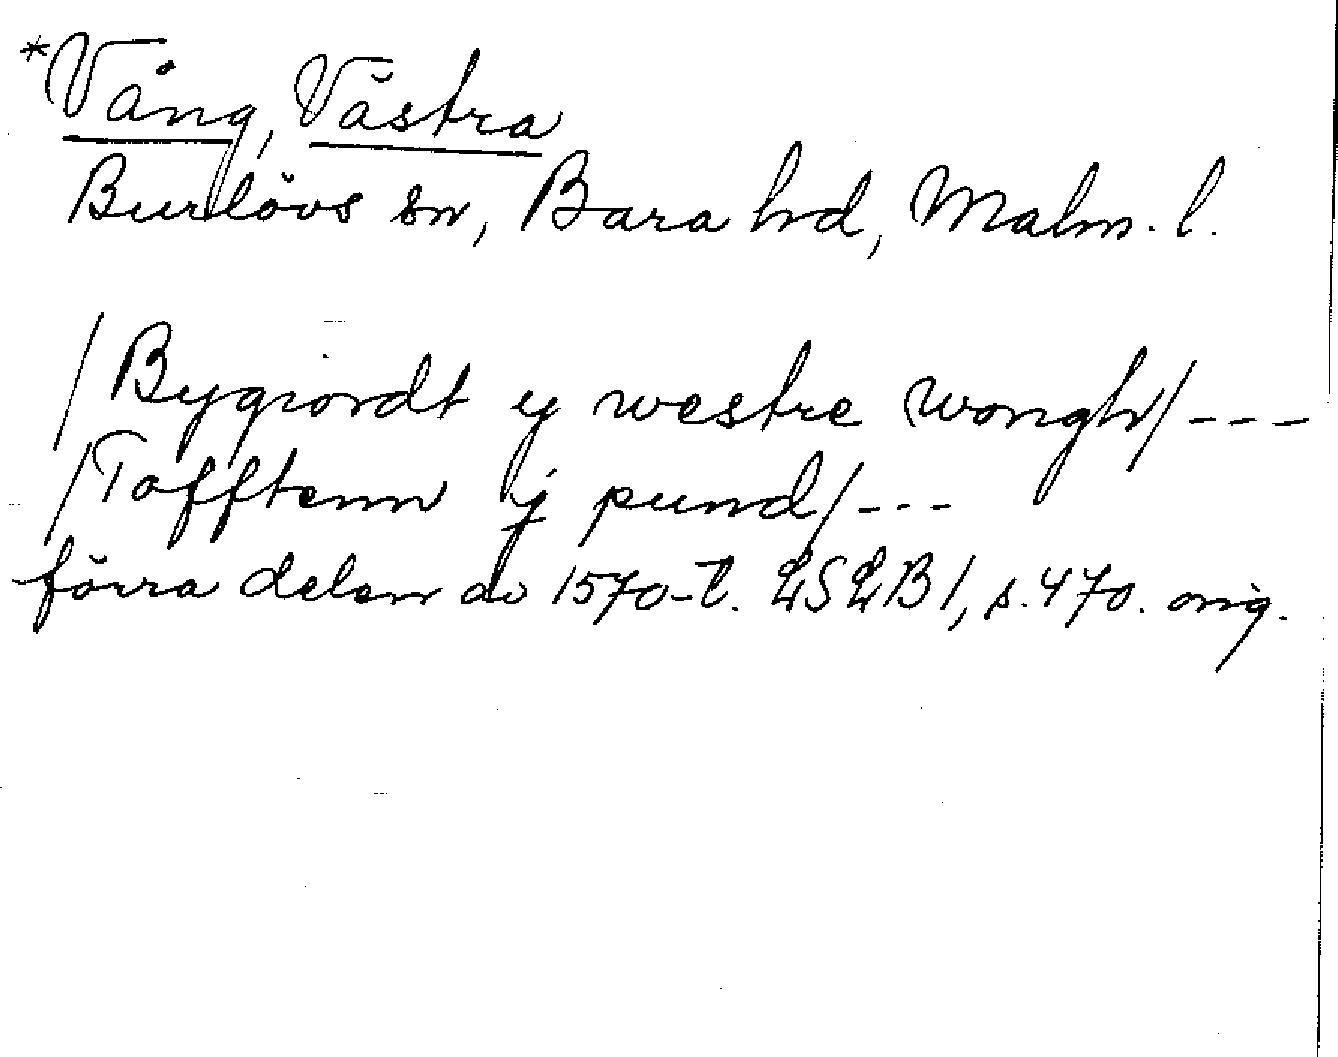 *Vång, Västra
Burlövs sn, Bara hd, Malm. l.
/Bygiordt y westre wongh/---
/Tofftenn ij pund/---
förra delen av 1570-t. LSLB1, s. 470. orig.